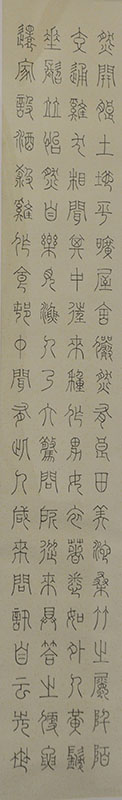 然開朗土地平曠屋舍儼然有良田美池桑竹之屬阡陌
交通雞犬相聞其中往來種作男女衣著悉如外人黃髮
垂髫並怡然自樂見漁人乃大驚問所從來具答之便要
還家設酒殺雞作食邨中聞有此人咸來問訊自云先世